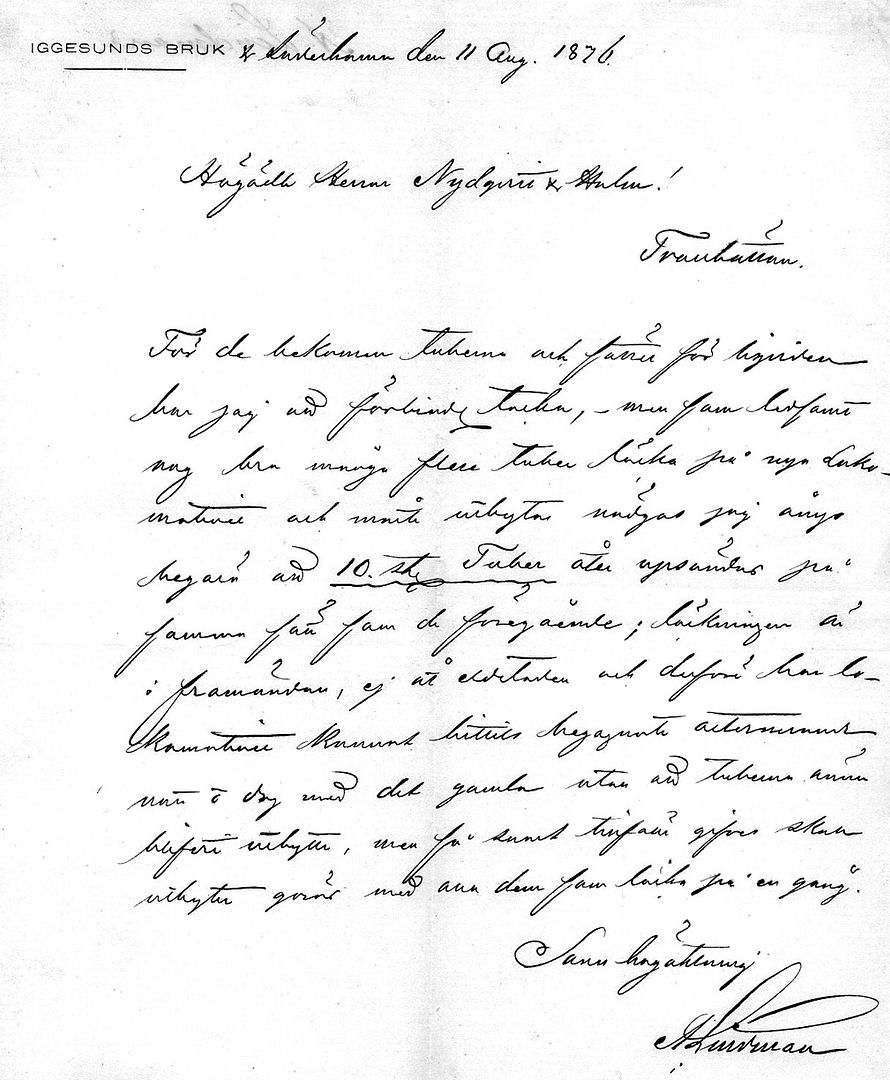 IGGESUNDS BRUK & Söderhamn den 11 Aug. 1876.
Högädle Herrar Nydqvist & Holm!
Trollhättan.
För de bekomna tuberna och sättet för
har jag att förbindl. tacka, – men som ledsamt
nog är många flere tuber läcka på nya Loko-
motivet och måste utbytas nödgas jag ånyo
begära att 10. st. Tuber åter uppsändas på
samma sätt som de föregående; läckningen är
i framändan, ej åt eldstaden och derföre har lo-
komotivet kunnat hittills begagnats alternerande
natt o dag med det gamla utan att tuberna ännu
blifvit utbytte, men så snart tillfälle gifves skall
utbytet göras med alla dem som läcka på en gång.
Sann högaktning
A Lindman